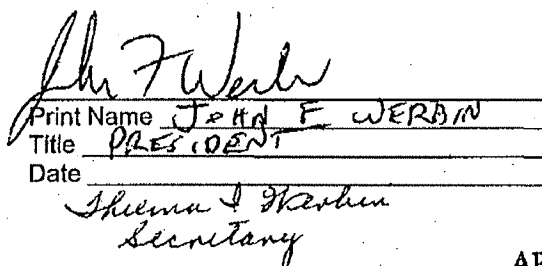 John F Werbin
Print Name JOHN F WERBIN
Title PRESIDENT
Date
I Werbin
Secretary
AP